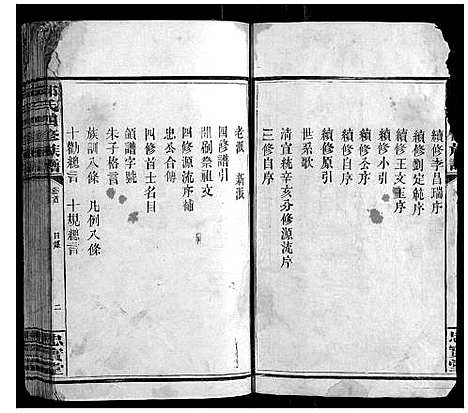 續修李昌瑞序
續修劉定範序
續修王文重序
續修公序
續修小引
續修原引
世系歌
清宣統辛亥分修源流序
三修自序
老派　新派
四修譜引
開剏祭祖文
四修源流序補
忠公合傳
四修首士名目
領譜字號
朱子格言
族訓八條　凡例八條
十勸總言　十規總言
氏四修族譜
卷首
目錄
二
忠實堂